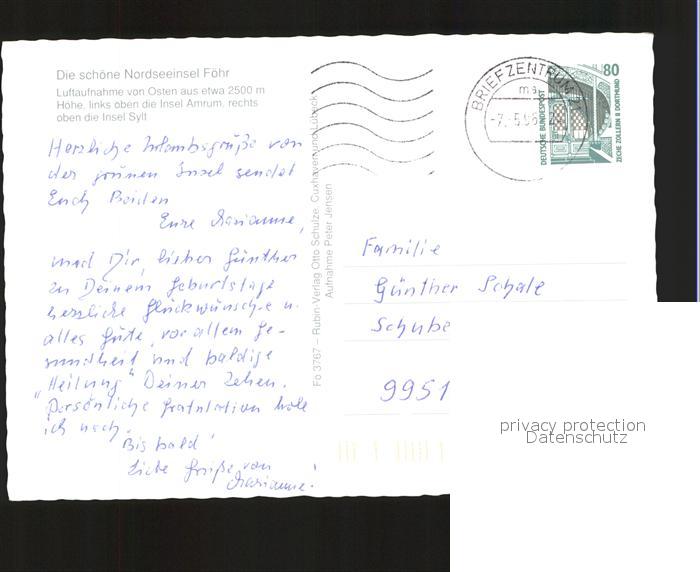 Die schöne Nordseeinsel Föhr
Luftaufnahme von Osten aus etwa 2500 m
Höhe, links oben die Insel Amrum, rechts
oben die Insel Sylt
Herzliche Urlaubsgrüße von
der grünen Insel sendet
Euch Beiden
Eure Marianne,
und Dir, lieber Günther
zu Deinem Geburtstage
herzliche Glückwünsche u.
alles Gute, vor allem Ge-
sundheit und baldige
"Heilung" Deiner Zehen.
Persönliche Gratulation hole
ich nach.
Bis bald!
Liebe Grüße von
Marianne!
Fo 3767 – Rubin-Verlag Otto Schulze, Cuxhaven und Lübeck
Aufnahme Peter Jensen
BRIEFZENTRUM
-7.-5.96
80
DEUTSCHE BUNDESPOST
ZECHE ZOLLERN II DORTMUND
Familie
Günther Schale
Schube
9951
privacy protection
Datenschutz